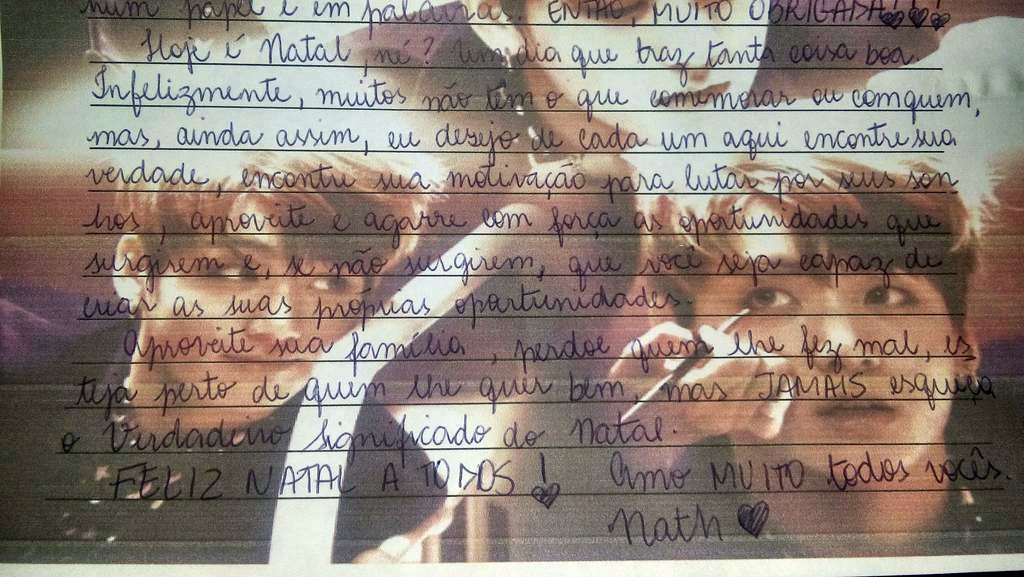 num papel e em palavras. ENTÃO, MUITO OBRIGADA!!!
Hoje é Natal, né? Um dia que traz tanta coisa boa.
Infelizmente, muitos não têm o que comemorar ou com quem,
mas, ainda assim, eu desejo de cada um aqui encontre sua
verdade, encontre sua motivação para lutar por seus son
hos, aproveite e agarre com força as oportunidades que
surgirem e, se não surgirem, que você seja capaz de
criar as suas próprias oportunidades.
Aproveite sua família, perdoe quem lhe fez mal, es
teja perto de quem lhe quer bem, mas JAMAIS esqueça
o Verdadeiro significado do Natal.
FELIZ NATAL A TODOS! Amo MUITO todos vocês.
Nath